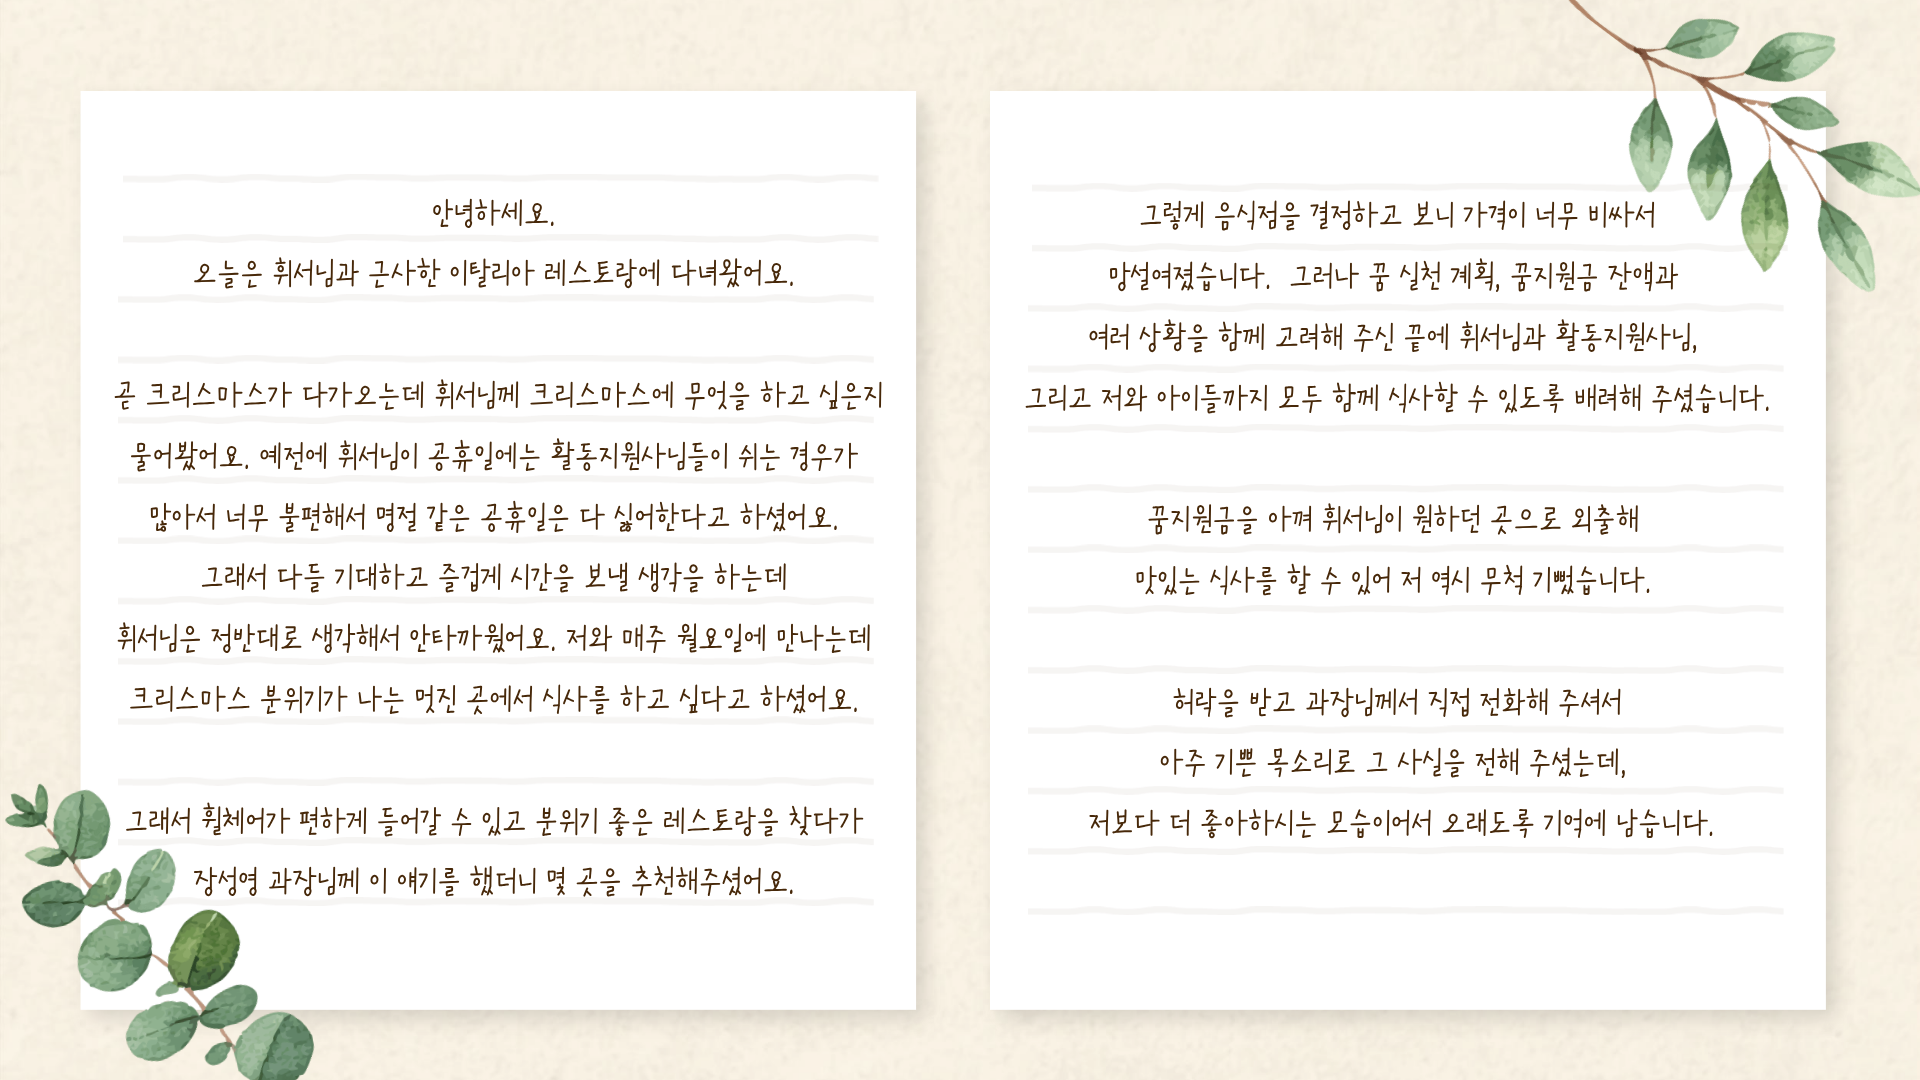 안녕하세요.
오늘은 휘서님과 근사한 이탈리아 레스토랑에 다녀왔어요.
곧 크리스마스가 다가오는데 휘서님께 크리스마스에 무엇을 하고 싶은지
물어봤어요. 예전에 휘서님이 공휴일에는 활동지원사님들이 쉬는 경우가
많아서 너무 불편해서 명절 같은 공휴일은 다 싫어한다고 하셨어요.
그래서 다들 기대하고 즐겁게 시간을 보낼 생각을 하는데
휘서님은 정반대로 생각해서 안타까웠어요. 저와 매주 월요일에 만나는데
크리스마스 분위기가 나는 멋진 곳에서 식사를 하고 싶다고 하셨어요.
그래서 휠체어가 편하게 들어갈 수 있고 분위기 좋은 레스토랑을 찾다가
장성영 과장님께 이 얘기를 했더니 몇 곳을 추천해주셨어요.
그렇게 음식점을 결정하고 보니 가격이 너무 비싸서
망설여졌습니다. 그러나 꿈 실천 계획, 꿈지원금 잔액과
여러 상황을 함께 고려해 주신 끝에 휘서님과 활동지원사님,
그리고 저와 아이들까지 모두 함께 식사할 수 있도록 배려해 주셨습니다.
꿈지원금을 아껴 휘서님이 원하던 곳으로 외출해
맛있는 식사를 할 수 있어 저 역시 무척 기뻤습니다.
허락을 받고 과장님께서 직접 전화해 주셔서
아주 기쁜 목소리로 그 사실을 전해 주셨는데,
저보다 더 좋아하시는 모습이어서 오래도록 기억에 남습니다.